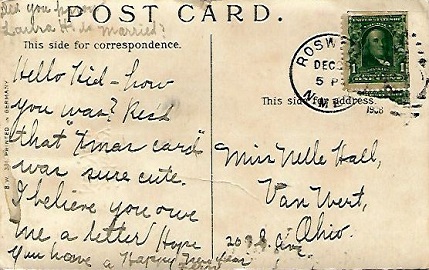 Did you know
Laura H. is married?
POST CARD.
This side for correspondence.
Hello Kid - how
you was? Rec'd
that "Xmas card"
was sure cute.
I believe you owe
me a letter Hope
you have a Happy New Year
ROSW
DEC
5 P
N.M.
1
This side for address.
1908
Miss Nelle Hall,
Van Wert,
Ohio.
Ave.
PRINTED IN GERMANY